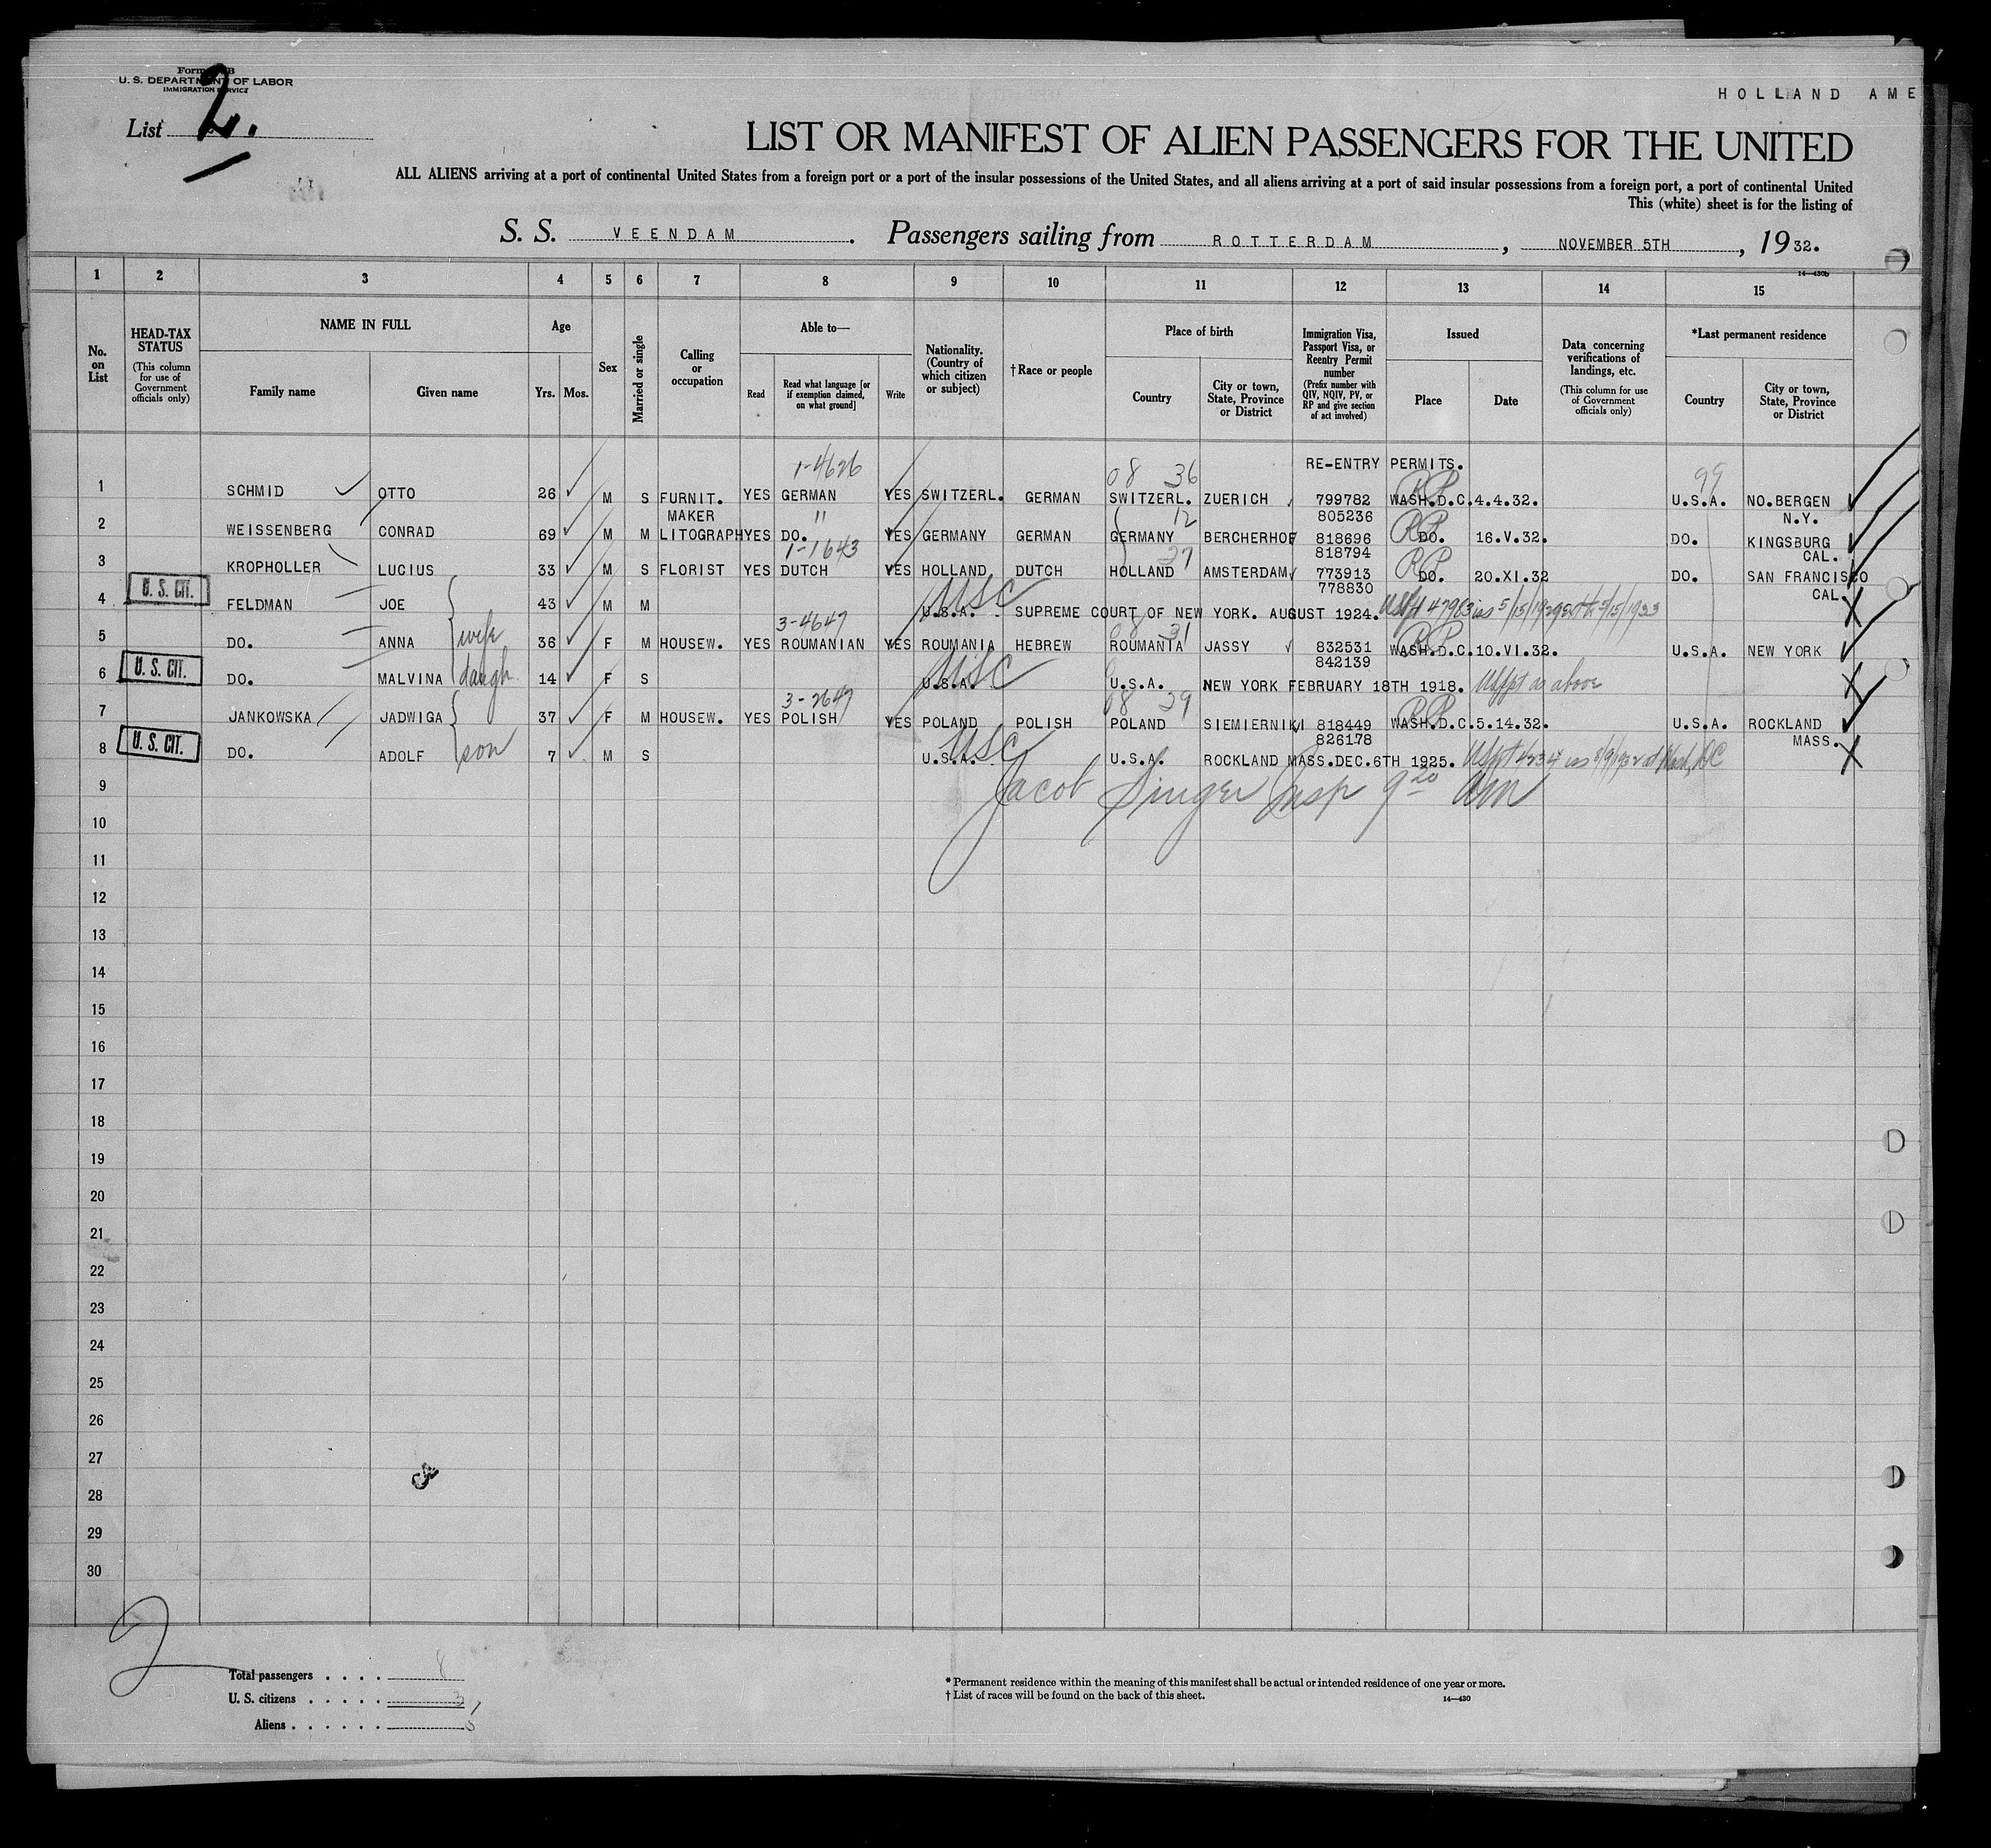 Form B
U. S. DEPARTMENT OF LABOR
IMMIGRATION SERVICE
List 2.
HOLLAND AME
LIST OR MANIFEST OF ALIEN PASSENGERS FOR THE UNITED
ALL ALIENS arriving at a port of continental United States from a foreign port or a port of the insular possessions of the United States, and all aliens arriving at a port of said insular possessions from a foreign port, a port of continental United
This (white) sheet is for the listing of
S. S. VEENDAM. Passengers sailing from ROTTERDAM, NOVEMBER 5TH, 1932.
14—430b
1 2 3 4 5 6 7 8 9 10 11 12 13 14 15
No. on List
HEAD-TAX STATUS
(This column for use of Government officials only)
NAME IN FULL
Family name Given name
Age
Yrs. Mos.
Sex
Married or single
Calling or occupation
Able to—
Read
Read what language [or if exemption claimed, on what ground]
Write
Nationality. (Country of which citizen or subject)
†Race or people
Place of birth
Country
City or town, State, Province or District
Immigration Visa, Passport Visa, or Reentry Permit number
(Prefix number with QIV, NQIV, PV, or RP and give section of act involved)
Issued
Place Date
Data concerning verifications of landings, etc.
(This column for use of Government officials only)
*Last permanent residence
Country
City or town, State, Province or District
1-4626 08 36 RE-ENTRY PERMITS. 99
1 SCHMID OTTO 26 M S FURNIT. YES GERMAN YES SWITZERL. GERMAN SWITZERL. ZUERICH 799782 RP WASH.D.C. 4.4.32. U.S.A. NO.BERGEN
MAKER " 12 805236 N.Y.
2 WEISSENBERG CONRAD 69 M M LITOGRAPH YES DO. YES GERMANY GERMAN GERMANY BERCHERHOF 818696 RP DO. 16.V.32. DO. KINGSBURG
1-1643 27 818794 CAL.
3 KROPHOLLER LUCIUS 33 M S FLORIST YES DUTCH YES HOLLAND DUTCH HOLLAND AMSTERDAM 773913 RP DO. 20.XI.32 DO. SAN FRANCISCO
778830 CAL.
U. S. CIT.
4 FELDMAN JOE 43 M M U.S.A. USC SUPREME COURT OF NEW YORK. AUGUST 1924. 5/15/1933
3-4647 08 31
5 DO. ANNA wife 36 F M HOUSEW. YES ROUMANIAN YES ROUMANIA HEBREW ROUMANIA JASSY 832531 RP WASH.D.C. 10.VI.32. U.S.A. NEW YORK
842139
U. S. CIT.
6 DO. MALVINA daugh. 14 F S U.S.A. USC U.S.A. NEW YORK FEBRUARY 18TH 1918. USppt as above
3-2647 08 29
7 JANKOWSKA JADWIGA 37 F M HOUSEW. YES POLISH YES POLAND POLISH POLAND SIEMIERNIKI 818449 RP WASH.D.C. 5.14.32. U.S.A. ROCKLAND
826178 MASS.
U. S. CIT.
8 DO. ADOLF son 7 M S U.S.A. USC U.S.A. ROCKLAND MASS.DEC.6TH 1925. Wash, DC
9 Jacob Singer Insp 9 20 AM
10
11
12
13
14
15
16
17
18
19
20
21
22
23
24
25
26
27
28
29
30
2
Total passengers . . . . 8
U. S. citizens . . . . . 3
Aliens . . . . . . 5
* Permanent residence within the meaning of this manifest shall be actual or intended residence of one year or more.
† List of races will be found on the back of this sheet.
14—430